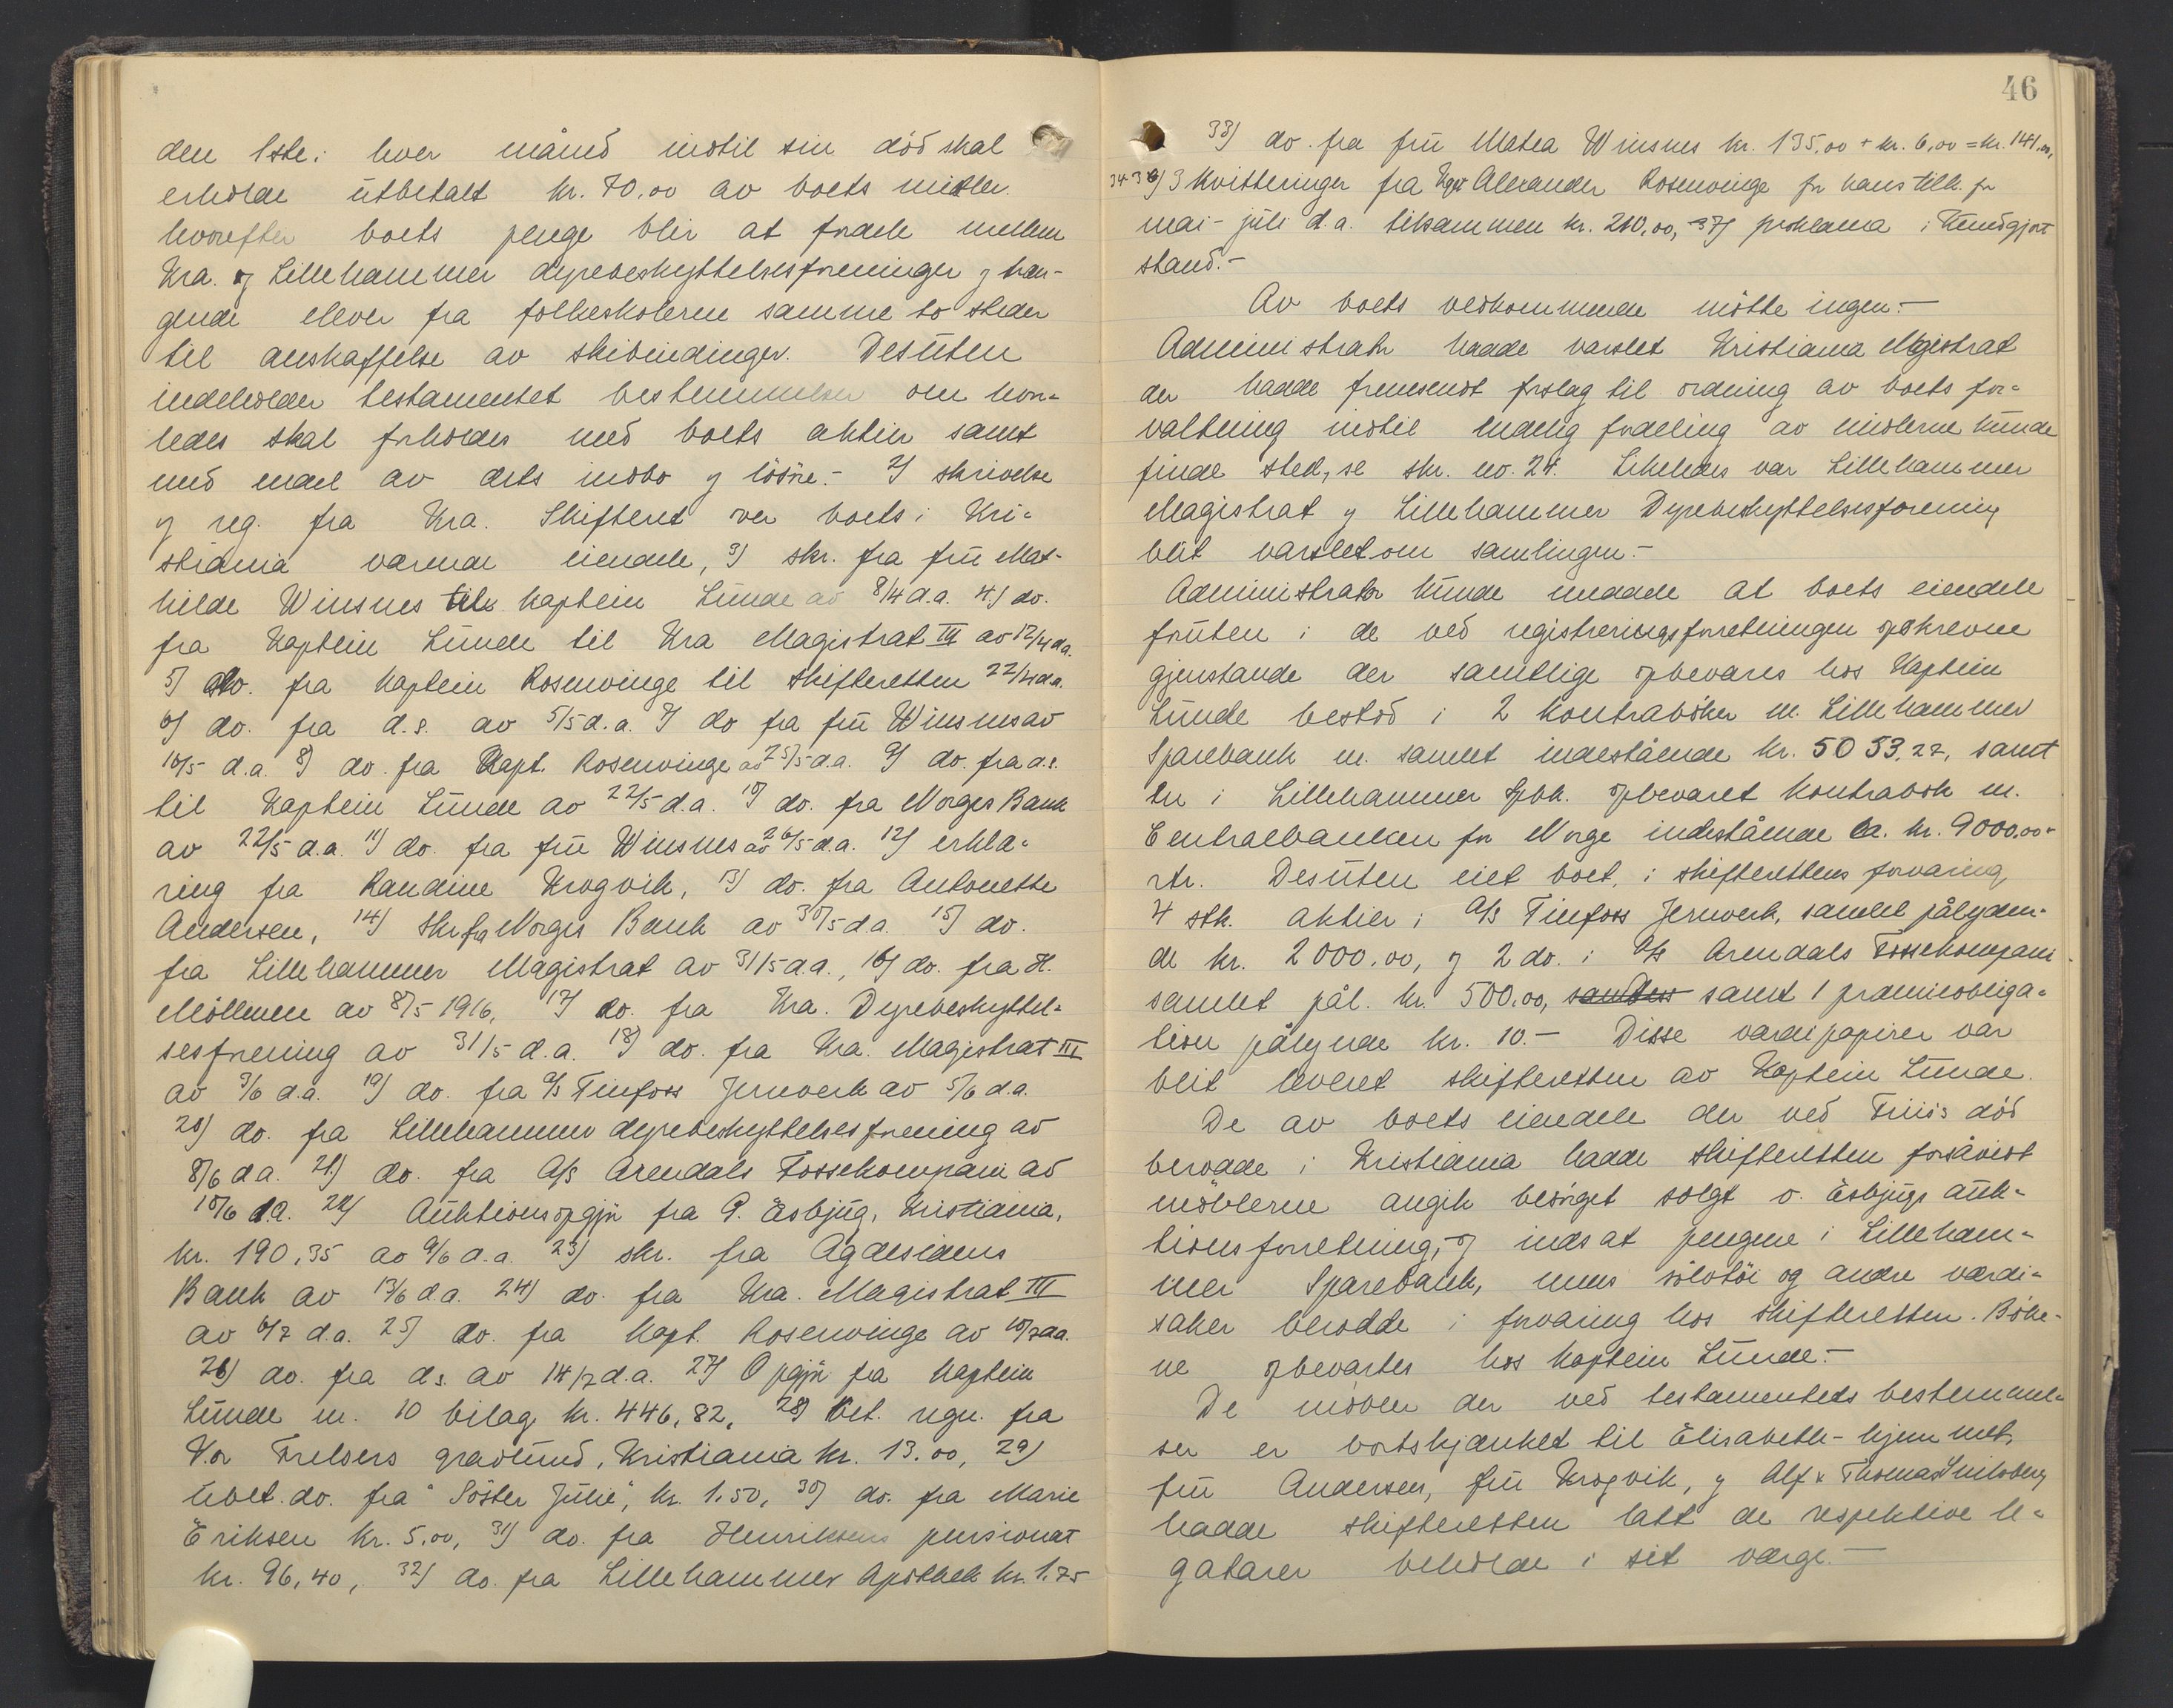 den 1ste i hver måned indtil sin död skal
erholde utbetalt kr. 70.00 av boets midler.
hvorefter boets penge blir at fordele mellem
Kra. og Lillehammer dyrebeskyttelsesforeninger og træn-
gende elever fra folkeskolerne samme to steder
til anskaffelse av skibindinger. Desuten
indeholder testamentet bestemmelser om hvor-
ledes skal forholdes med boets aktier samt
med endel av dets indbo og lösöre.- 2) skrivelse
og reg. fra Kra. Skifteret over boets i Kri-
stiania værende eiendele, 3) skr. fra fru Mat-
hilde Winsnes til kaptein Lunde av 8/4 d.a. 4) do.
fra Kaptein Lunde til Kra Magistrat III av 12/4 d.a.
5) do. fra kaptein Rosenvinge til skifteretten 22/4 d.a.
6) do. fra d.s. av 5/5 d.a. 7) do fra fru Winsnes av
16/5 d.a. 8) do. fra Kapt. Rosenvinge av 25/5 d.a. 9) do. fra d.s.
til Kaptein Lunde av 22/5 d.a. 10) do. fra Norges Bank
av 22/5 d.a. 11) do. fra fru Winsnes av 26/5 d.a. 12) erklæ-
ring fra Randine Krogvik, 13) do. fra Antonette
Andersen, 14) Skr fra Norges Bank av 30/5 d.a. 15) do.
fra Lillehammer Magistrat av 31/5 d.a., 16) do. fra H.
Möllmen av 8/5 1916, 17) do. fra Kra. Dyrebeskyttel-
sesforening av 31/5 d.a. 18) do. fra Kra. Magistrat III
av 3/6 d.a. 19) do. fra A/S Tinfoss Jernverk av 5/6 d.a.
20) do. fra Lillehammer dyrebeskyttelsesforening av
8/6 d.a. 21) do. fra A/S Arendals Fossekompani av
10/6 d.a. 22) Auktionsopgjör fra P. Esbjug, Kristiania,
kr. 190,35 av 9/6 d.a. 23) skr. fra Agdesidens
Bank av 13/6 d.a. 24) do. fra Kra. Magistrat III
av 6/7 d.a. 25) do. fra Kapt. Rosenvinge av 10/7 d.a.
26) do. fra d.s. av 14/7 d.a. 27) Opgjör fra kaptein
Lunde m. 10 bilag kr. 446,82, 28) Bet. regn. fra
Vor Frelsers gravlund, Kristiania kr. 13.00, 29)
ubet. do. fra "Söster Julie", kr. 1.50, 30) do. fra Marie
Eriksen kr. 5,00, 31) do. fra Henriksens pensionat
kr. 96,40, 32) do. fra Lillehammer Apothek kr. 1.75
46
33) do. fra fru Matea Winsnes kr. 135,00 + kr. 6,00 = kr. 141,00,
34-36) 3 kvitteringer fra Kapt Alexander Rosenvinge for hans tilk. for
mai - juli d.a. tilsammen kr. 210,00, 37) proklama i kundgjort
stand.-
Av boets vedkommende mötte ingen.-
Administrator hadde varslet Kristiania Magistrat
der hadde fremsendt forslag til ordning av boets for-
valtning indtil endelig fordeling av midlerne kunde
finde sted, se skr. no. 24. Likeledes var Lillehammer
Magistrat og Lillehammer Dyrebeskyttelsesforening
blit varslet om samlingen.-
Administrator kunde meddele at boets eiendele
foruten i de ved registreringsforretningen opskrevne
gjenstande der samtlige opbevares hos Kaptein
Lunde bestod i 2 kontraböker m. Lillehammer
Sparebank m. samlet indestående kr. 5053.22, samt
en i Lillehammer Spbk. opbevaret kontrabok m.
Centralbanken for Norge indestående ca. kr. 9000,00 +
rtr. Desuten eiet boet, i skifterettens forvaring
4 stk. aktier i A/S Tinfoss Jernverk, samlet pålyden-
de kr. 2000.00, og 2 do. i A/S Arendals Fossekompani
samlet pål. kr. 500,00, samt 1 præmieobliga-
tion pålydende kr. 10.- Disse værdipapirer var
blit leveret skifteretten av Kaptein Lunde.
De av boets eiendele der ved Friis's död
berodde i Kristiania hadde skifteretten forsåvidt
möblerne angik besörget solgt v. Esbjugs auk-
tionsforretning, og indsat pengene i Lilleham-
mer Sparebank, mens sölvtöi og andre værdi-
saker berodde i forvaring hos skifteretten. Böke-
ne opbevartes hos kaptein Lunde.-
De möbler der ved testamentets bestemmel-
ser er bortskjænket til Elisabeth-hjemmet,
fru Andersen, fru Krogvik, og Alf & Thomas
hadde skifteretten latt de respektive le-
gatarer beholde i sit værge.-